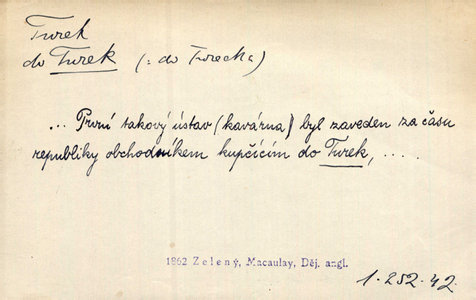 Turek
do Turek (: do Turecka)
... První takový ústav (kavárna) byl zaveden za času
republiky obchodníkem kupčícím do Turek, .....
1862 Zelený, Macaulay, Děj. angl.
1.252.42.